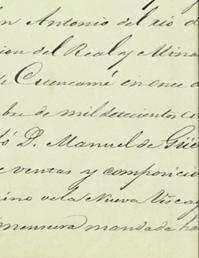 n Antonio del rio d
cion del Real y Minas
de Cuencamé en once d
bre de mil doscientos co
tó D. Manuel de Güe
e ventas y composicio
ino de la Nueva Viscay
mensura mandada ha